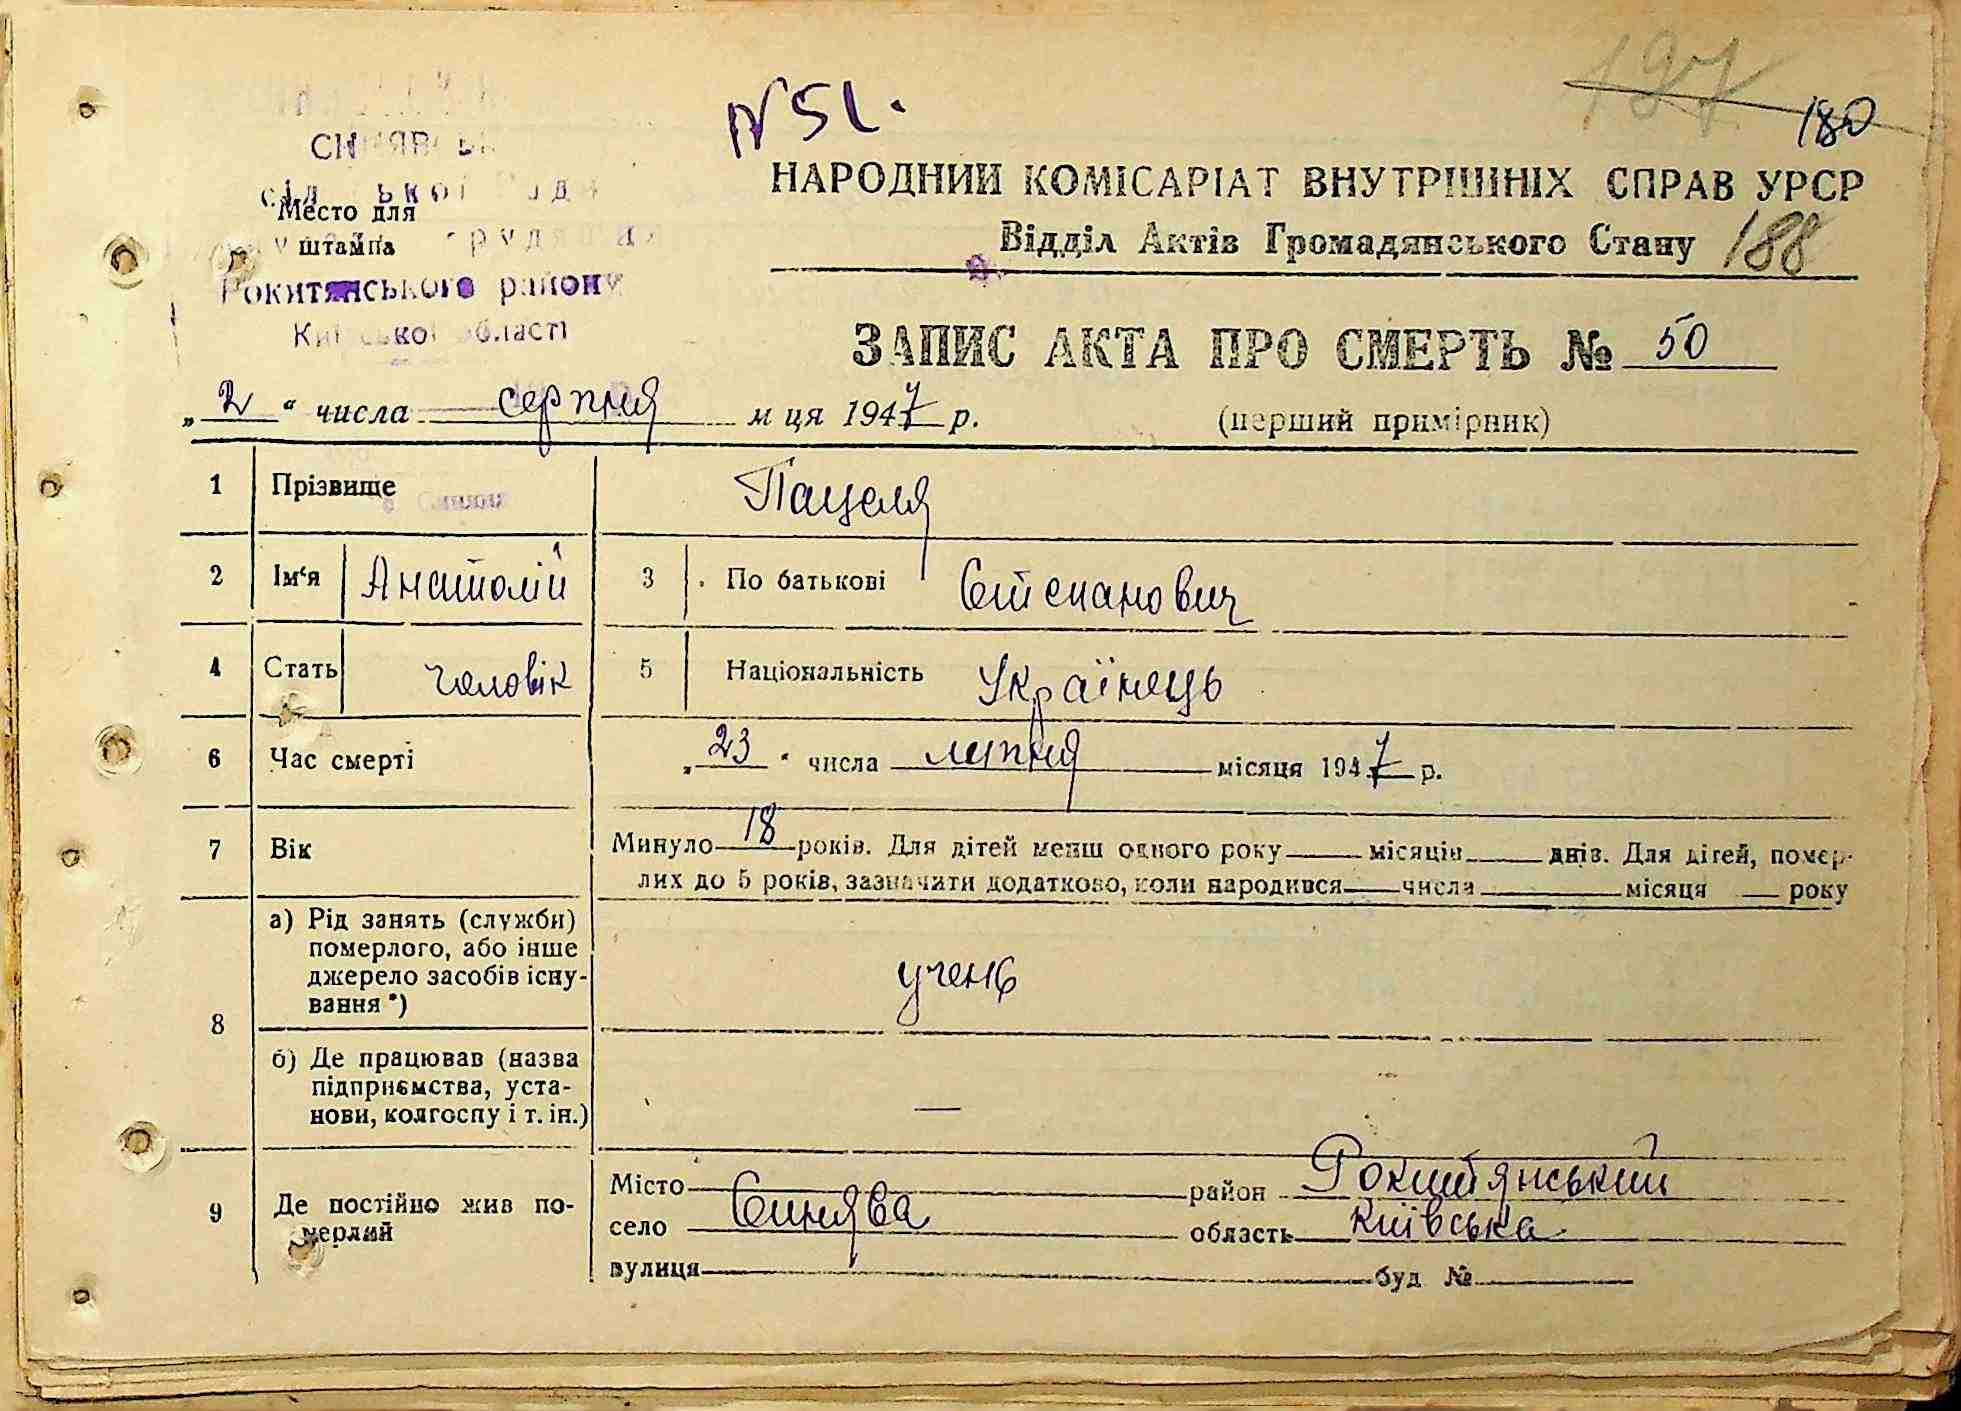 N 51.
197
180
НАРОДНИЙ КОМІСАРІАТ ВНУТРІШНІХ СПРАВ УРСР
Відділ Актів Громадянського Стану 188
Место для
штампа
Рокитянського району
Київської області
ЗАПИС АКТА ПРО СМЕРТЬ № 50
„ 2 “ числа серпня м ця 1947 р. (перший примірник)
1 Прізвище Пацеля
2 Ім‘я Анатолій 3 По батькові Стєпанович
4 Стать чоловік 5 Національність Українець
6 Час смерті „ 23 “ числа липня місяця 1947 р.
7 Вік Минуло 18 років. Для дітей менш одного року місяців днів. Для дітей, помер-
лих до 5 років, зазначати додатково, коли народився числа місяця року
8 а) Рід занять (служби)
померлого, або інше
джерело засобів існу-
вання *) учень
б) Де працював (назва
підприємства, уста-
нови, колгоспу і т. ін.) —
9 Де постійно жив по-
мерлий
Місто район Рокитянський
село Синява область Київська
вулиця буд №